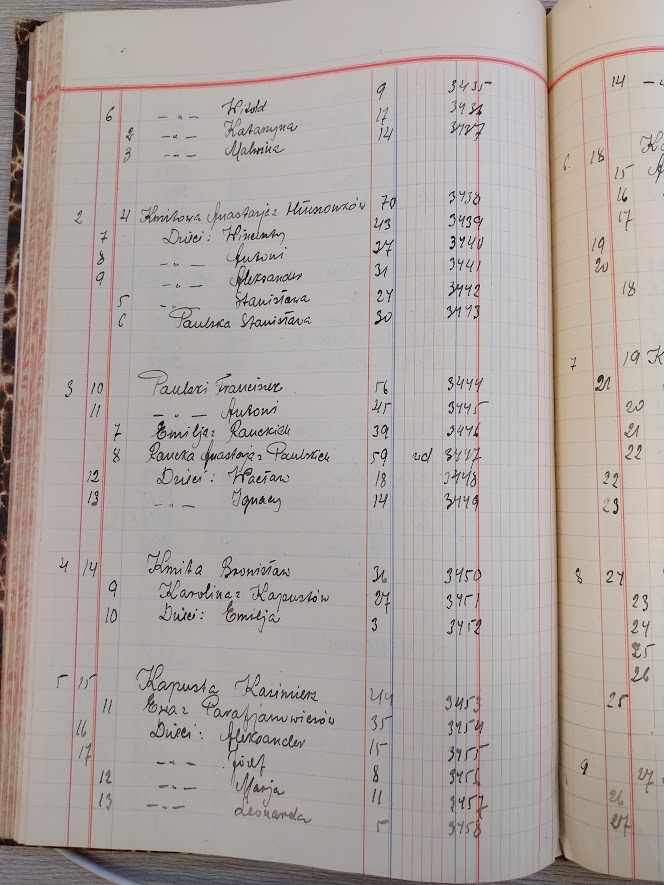 9 3435
6 — „ — Witold 17 3436
2 — „ — Katarzyna 14 3437
3 — „ — Malwina
2 4 Kmitowa Anastazja z 70 3438
7 Dzieci: Wincenty 43 3439
8 — „ — Antoni 37 3440
9 — „ — Aleksander 31 3441
5 — „ — Stanisława 24 3442
6 Paulska Stanisława 30 3443
3 10 Paulski Franciszek 56 3444
11 — „ — Antoni 45 3445
7 Emilja z Ranckich 39 3446
8 Rancka Anastazja z Paulskich 59 wd 3447
12 Dzieci: Wacław 18 3448
13 — „ — Ignacy 14 3449
4 14 Kmita Bronisław 36 3450
9 Karolina z Kapustów 27 3451
10 Dzieci: Emilja 3 3452
5 15 Kapusta Kazimierz 44 3453
11 Ewa z Parafjanowiczów 35 3454
16 Dzieci: Aleksander 15 3455
17 — „ — Józef 8 3456
12 — „ — Marja 11 3457
13 — „ — Leonarda 5 3458
14
6 18
15
16
17
19
20
18
7 19 K
21
20
21
22
22
23
8 24
23
24
25
26
25
9 27
26
27